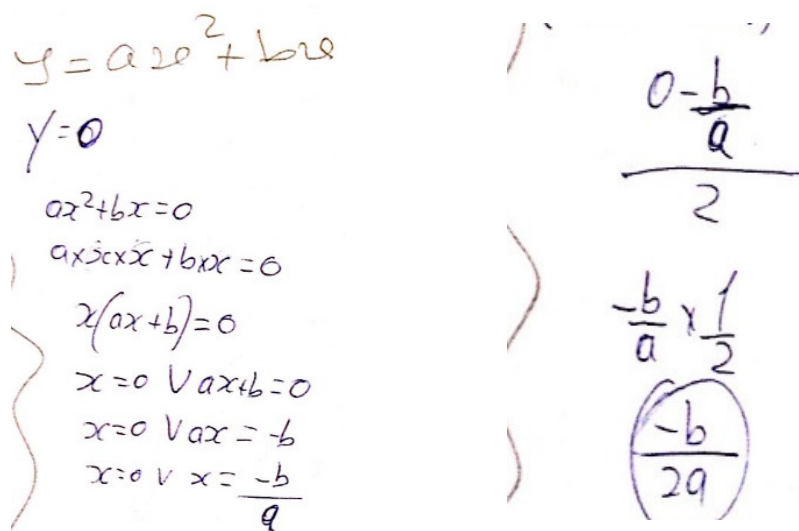 y = ax² + bx
y=0
ax²+bx=0
a×x×x+b×x=0
x(ax+b)=0
x=0 ∨ ax+b=0
x=0 ∨ ax = -b
x=0 ∨ x = -b/a
(0 - b/a)/2
-b/a × 1/2
-b/2a